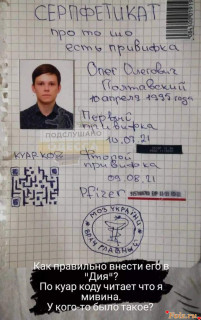 СЕРПФЕТИКАТ
про то шо
есть прививка
Олег Олегович
Полтавский
10 апреля 1995 года
Первый
прививка
19.07.21
ПОДСЛУШАНО
КУАР КОД
Фторой
прививка
09.08.21
Pfizer
МОЗ УКРАЇНИ
Как правильно внести его в
"Дия"?
По куар коду читает что я
мивина.
У кого-то было такое?
Fotx.ru